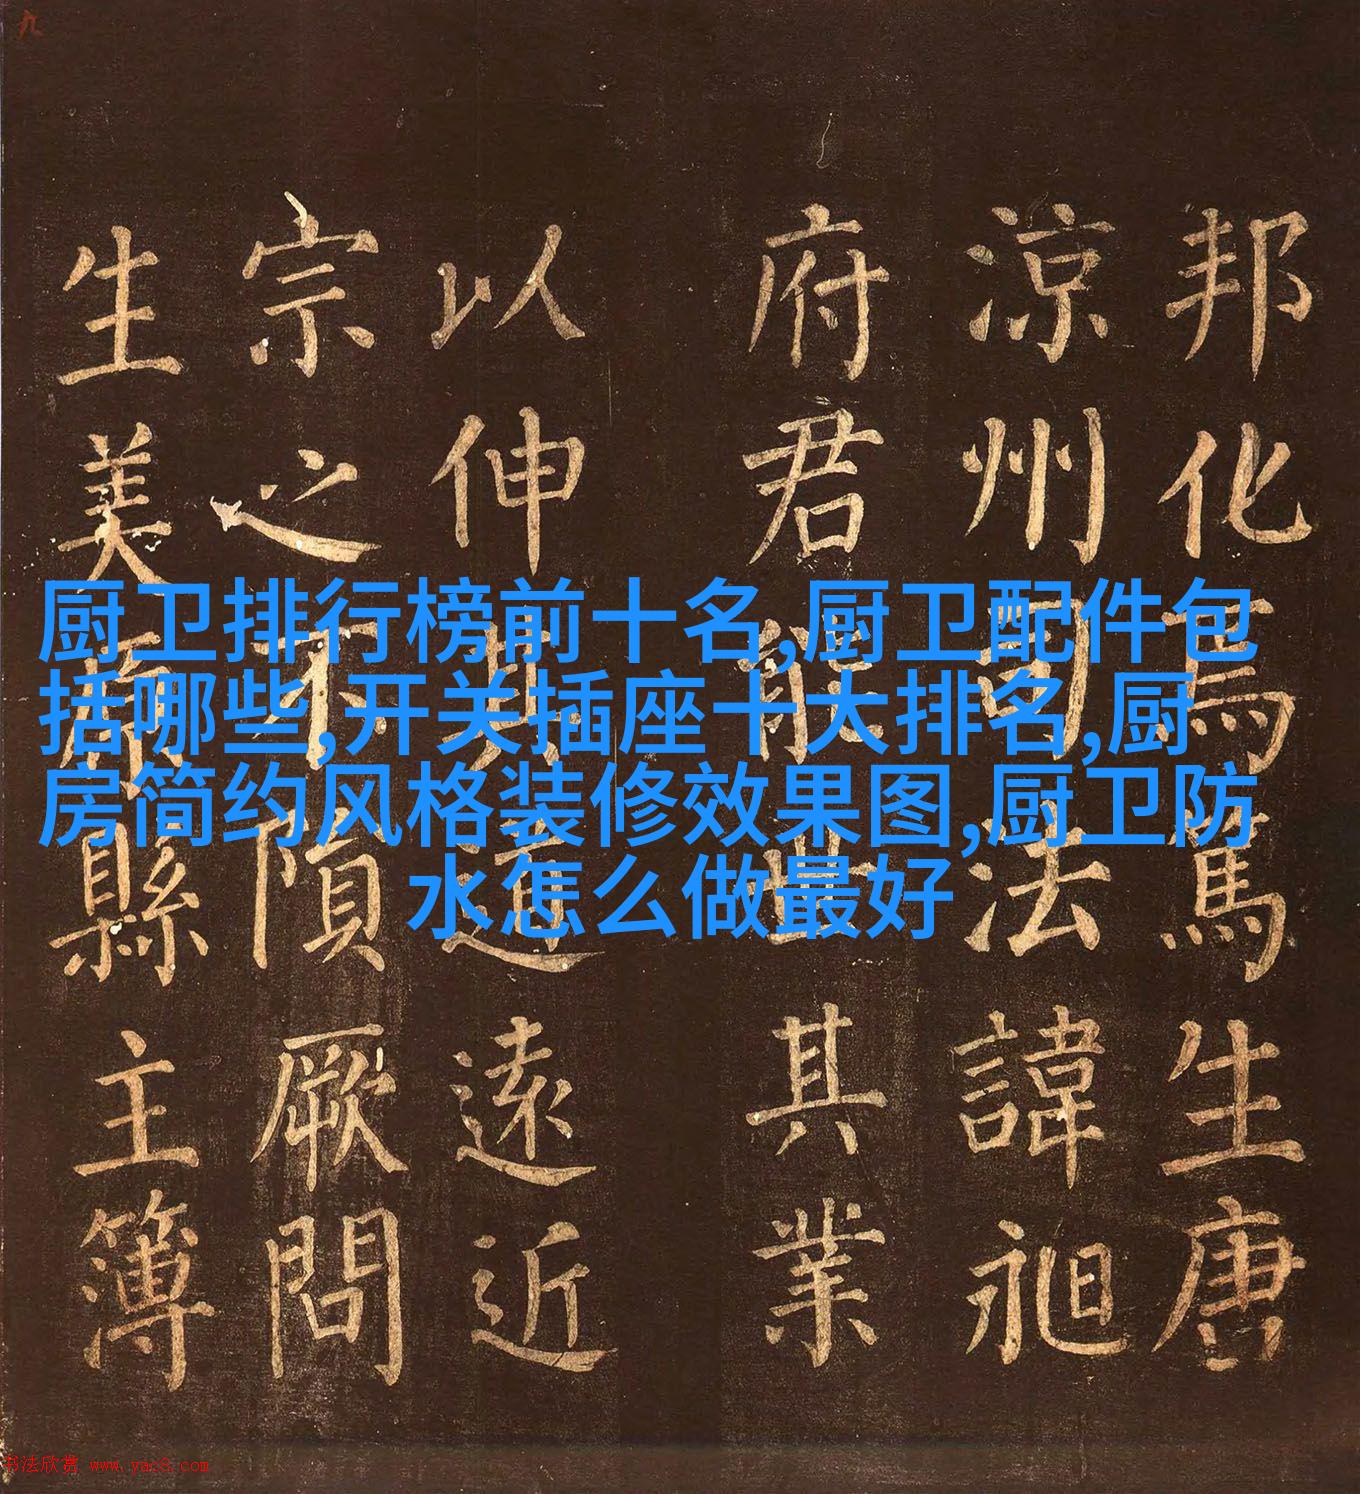 九
邦化焉篤生唐
涼州司法諱昶
府君能世其業
以伸其道遠近
宗之不隕厥問
生美原縣主簿
厨卫排行榜前十名,厨卫配件包
括哪些,开关插座十大排名,厨
房简约风格装修效果图,厨卫防
水怎么做最好
书法欣赏 www.yac8.com